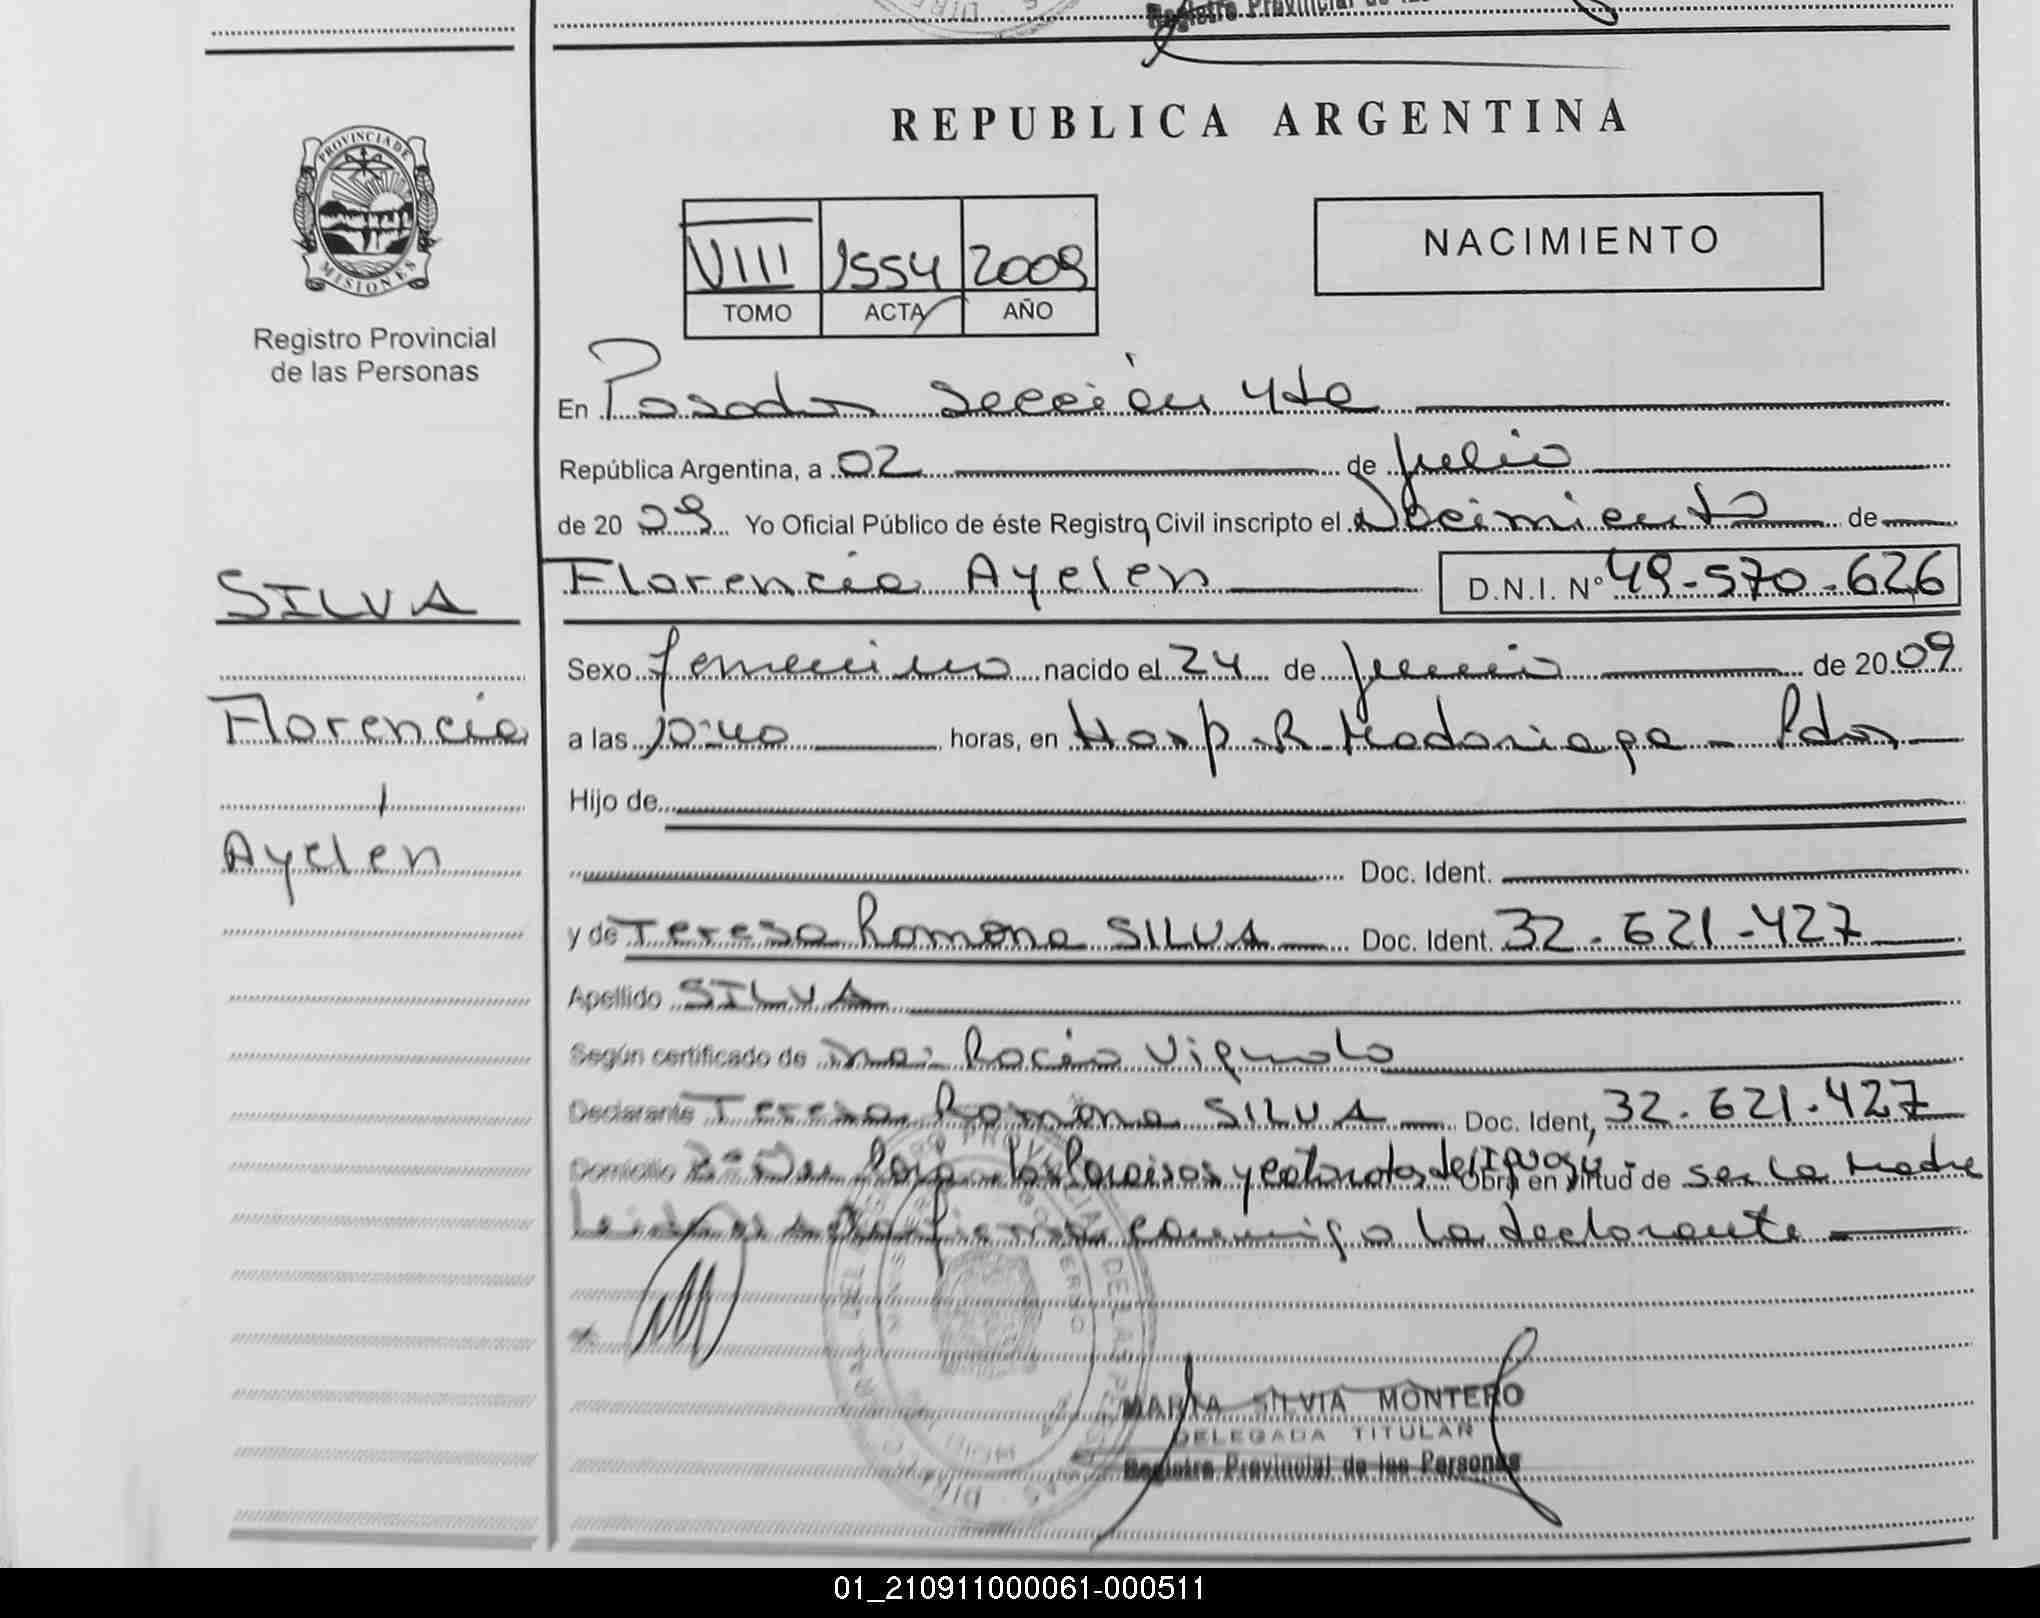 REPUBLICA ARGENTINA
PROVINCIA DE
MISIONES
Registro Provincial
de las Personas
VIII 1554 2009
TOMO ACTA AÑO
NACIMIENTO
En Posadas Sección 4ta
República Argentina, a 02 de Julio
de 20 09 Yo Oficial Público de éste Registro Civil inscripto el Nacimiento de
SILVA
Florencia
Ayelén
Florencia Ayelen D.N.I. Nº 49-570-626
Sexo femenino nacido el 24 de junio de 20 09
a las 10:40 horas, en Hosp. R. Madariaga - Pdas
Hijo de
Doc. Ident.
y de Teresa Ramona SILVA Doc. Ident. 32.621.427
Apellido SILVA
Según certificado de Rocío Vignolo
Declarante Teresa Ramona SILVA Doc. Ident, 32.621.427
Domicilio Los Paraisos y cataratas del Iguazú - Obra en virtud de ser la madre
Leida firma conmigo la declarante
MARIA SILVIA MONTERO
DELEGADA TITULAR
Registro Provincial de las Personas
01_210911000061-000511